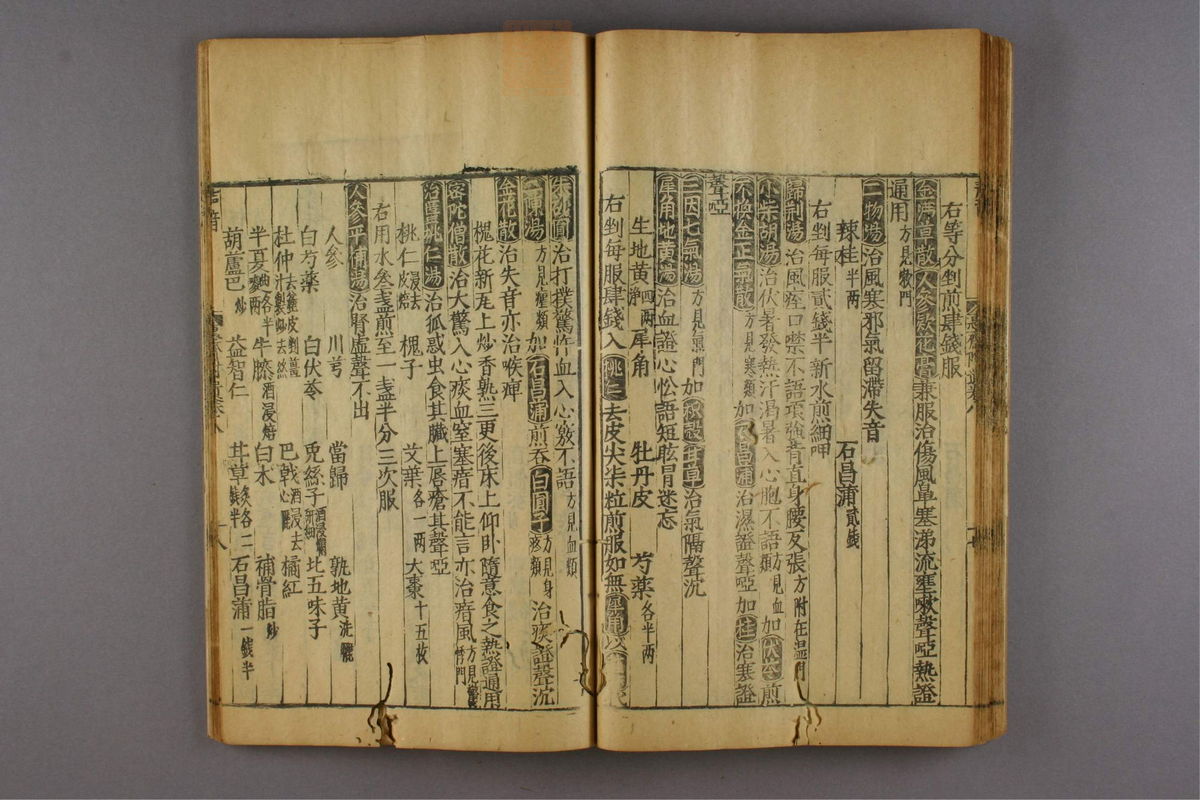 右等分剉煎肆錢服
金沸草散人參款花膏兼服治傷風單塞涕流壅嗽聲啞熱證
通用方見嗽門
二物湯治風寒邪氣留滯失音
辣桂半兩 石昌蒲貳錢
右剉每服貳錢半新水煎細呷
歸荊湯治風痓口噤不語項強背直身腰反張方附在溫門
小柴胡湯治伏暑發熱汗渴暑入心胞不語方見血類如伏苓煎
不換金正氣散方見寒類如石昌蒲治濕證聲啞加桂治寒證
聲啞
三因七氣湯方見氣門如枳殼甘草治氣隔聲沉
犀角地黃湯治血證心忪語短眩冒迷忘
生地黃四兩淨 犀角 牡丹皮 芍藥各半兩
右剉每服肆錢入桃仁去皮尖柒粒煎服如無犀用以
治打撲驚忤血入心竅不語方見血類
二陳湯方見瘧類如石昌蒲煎吞白圓子方見身疼類治痰證聲沉
金花散治失音亦治喉痺
槐花新瓦上炒香熟三更後床上仰臥隨意食之熱證通用
密陀僧散治大驚入心痰血窒塞瘖不能言亦治瘖風方見驚悸門
治䘌桃仁湯治狐惑虫食其臟上唇瘡其聲啞
桃仁浸去皮焙 槐子 艾葉各一兩 大棗十五枚
右用水叁盞煎至一盞半分三次服
人參平補湯治腎虛聲不出
人參 川芎 當歸 熟地黃洗曬
白芍藥 白伏苓 兎絲子酒浸爛研細 北五味子
杜仲去麁皮剉薑汁製炒去絲 巴戟酒浸去心曬 橘紅
半夏麯兩各半 牛膝酒浸焙 白朮 補骨脂炒
葫蘆巴炒 益智仁 甘草炙各二錢半 石昌蒲一錢半